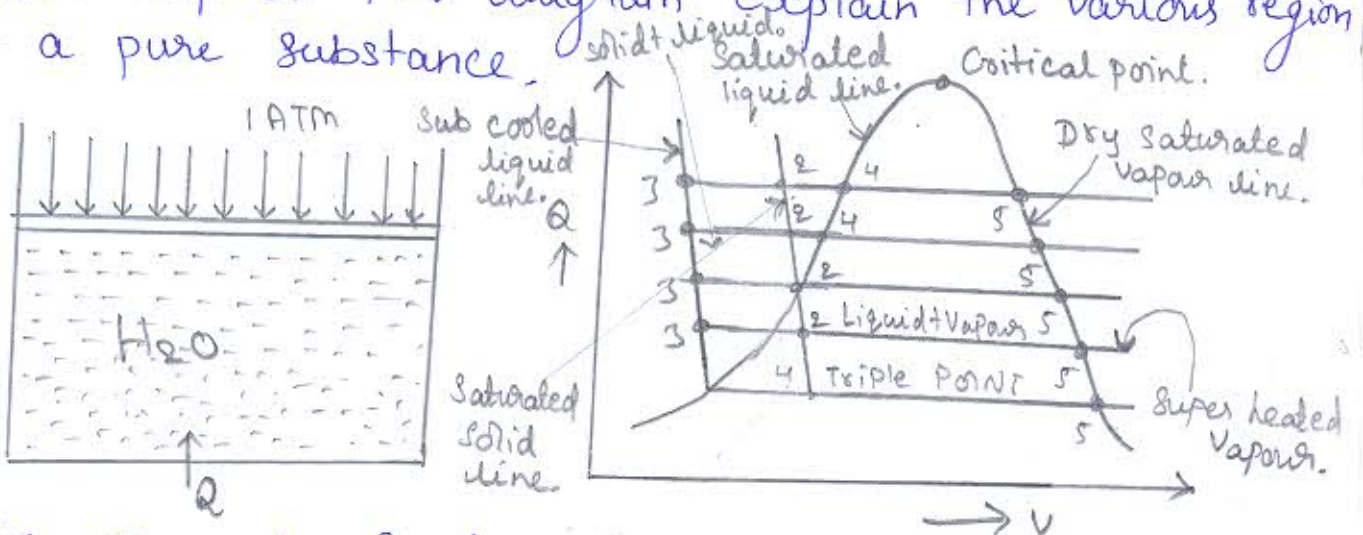 diagram explain the various region
a pure substance.
1 ATM
H2O
Q
solid + liquid.
Saturated
liquid line.
Critical point.
Sub cooled
liquid
line.
Dry Saturated
vapour line.
Q
3 2 4 5
3 2 4 5
3 2 5
3 2 Liquid + Vapour 5
4 Triple POINT 5
Saturated
Solid
line.
Super heated
Vapour.
V